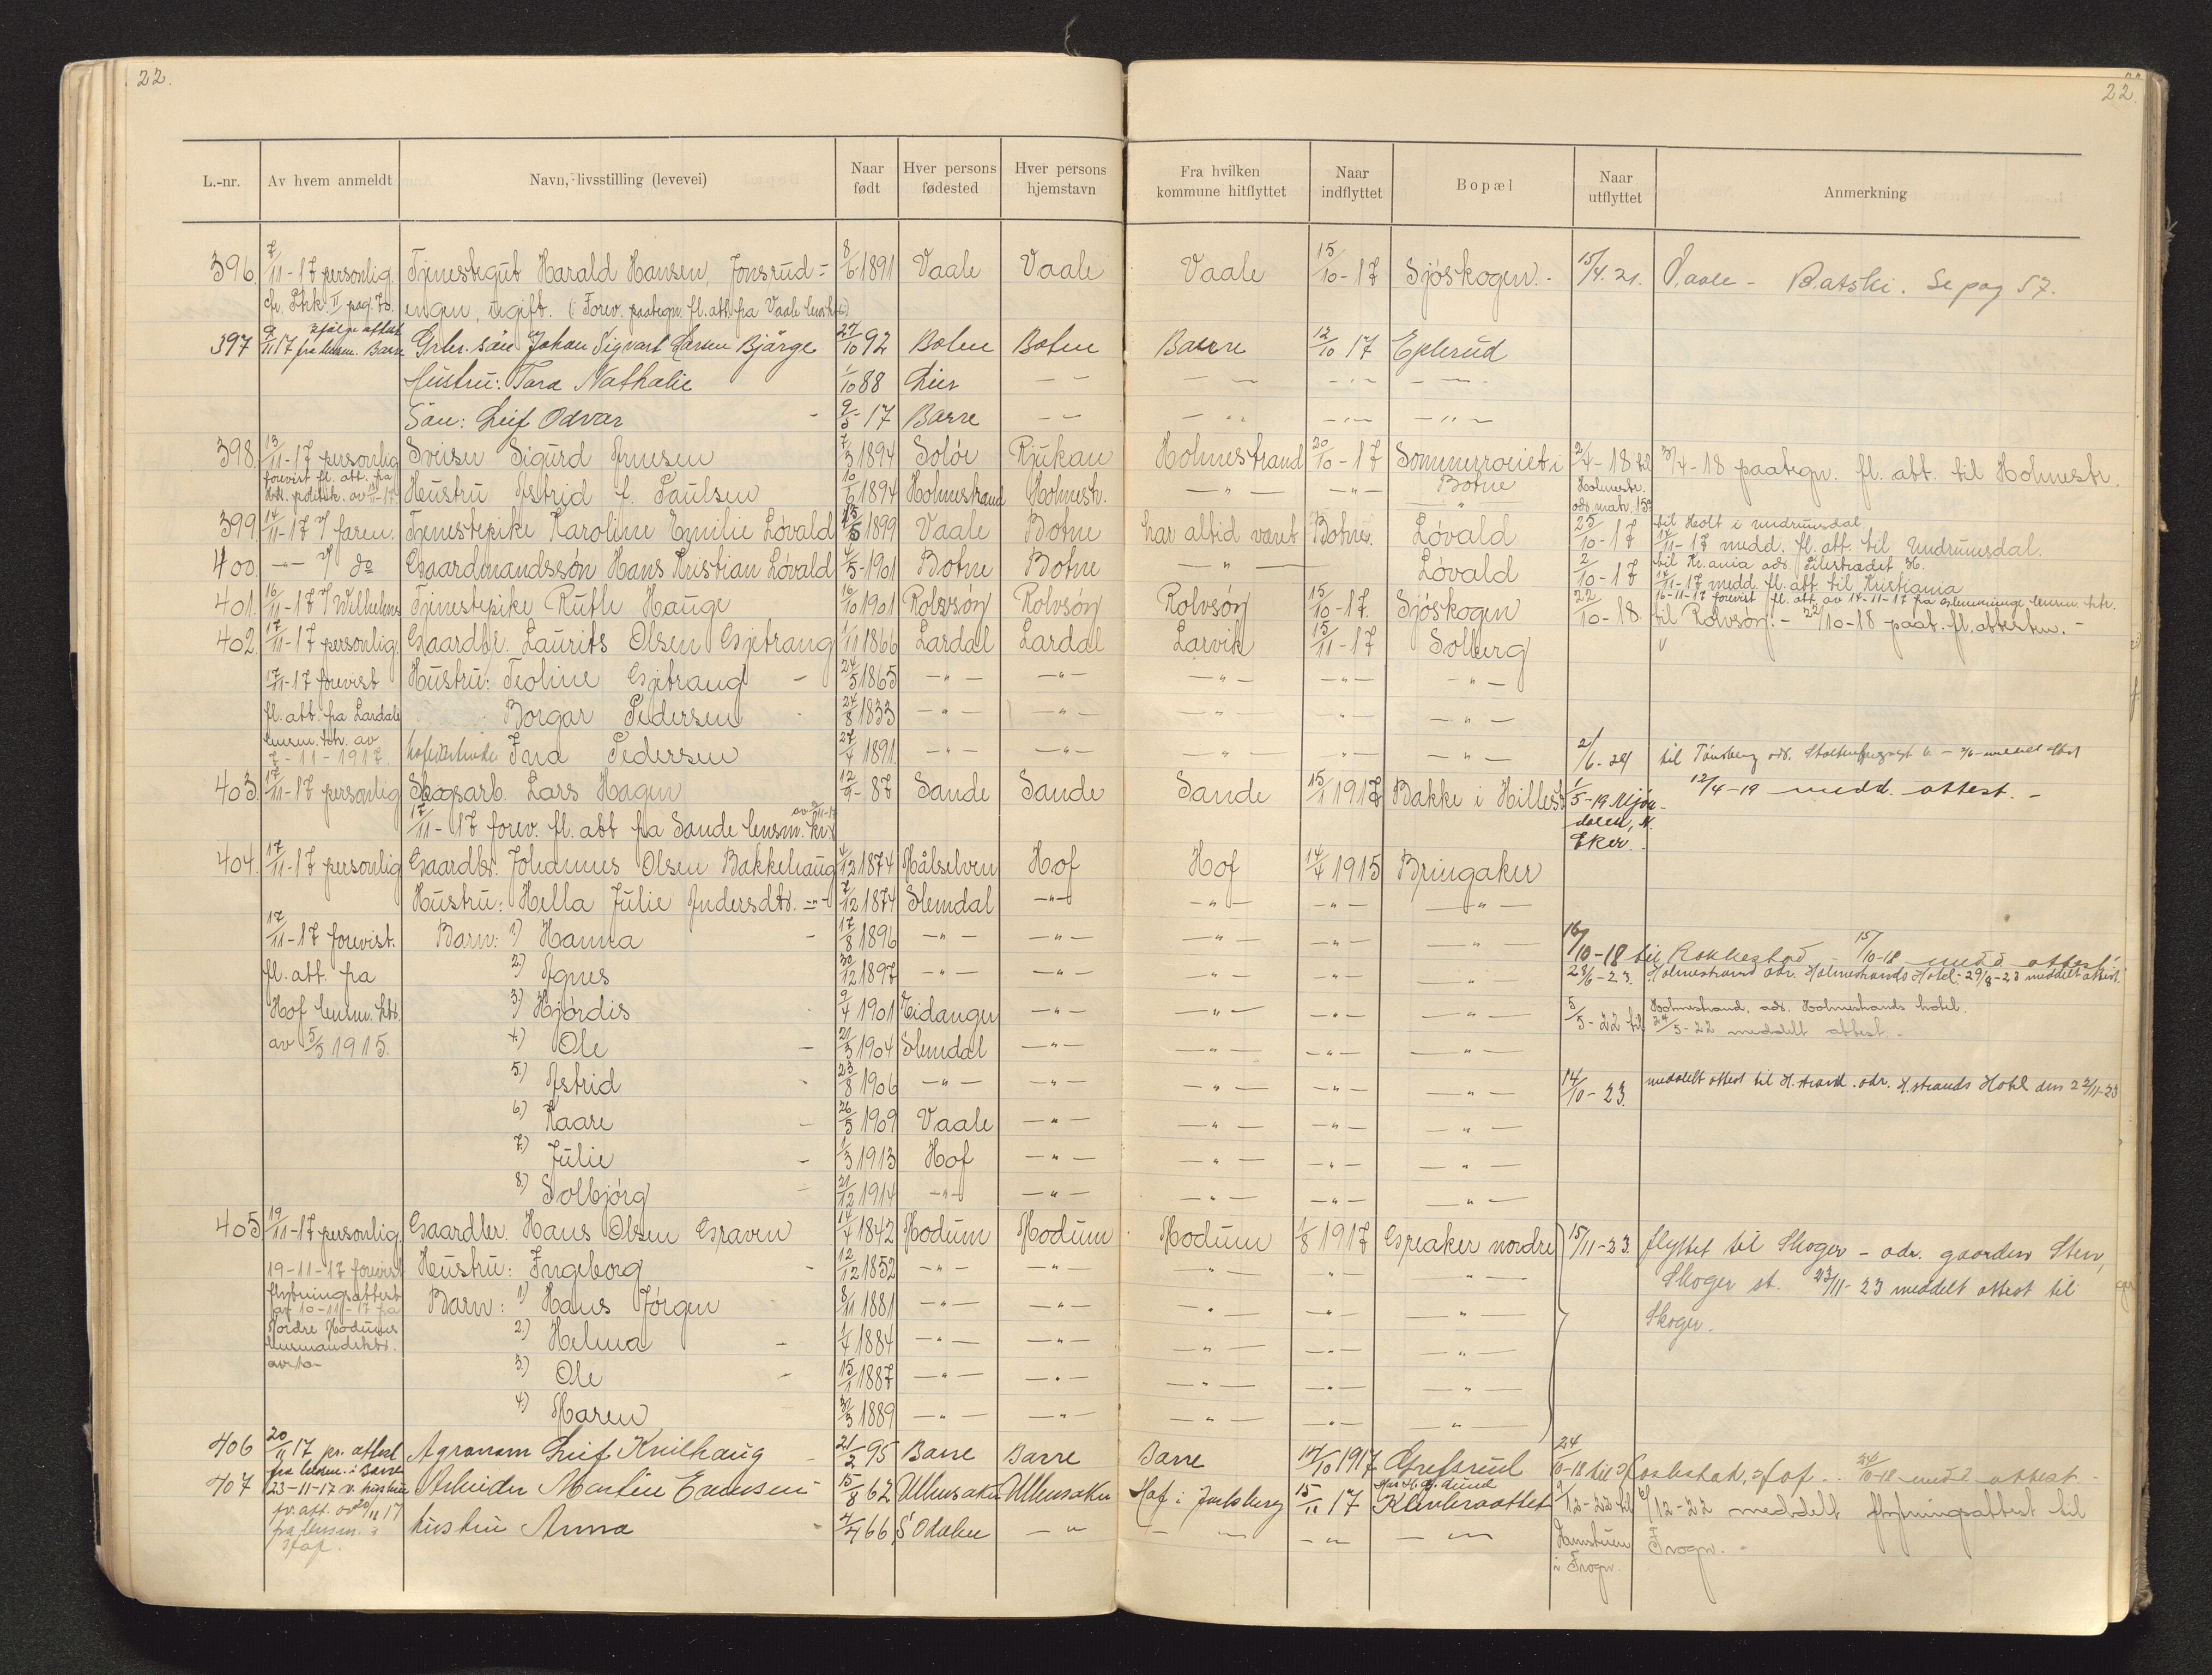 22.
22.
L.-nr. Av hvem anmeldt Navn, livsstilling (levevei) Naar født Hver persons fødested Hver persons hjemstavn Fra hvilken kommune hitflyttet Naar indflyttet Bopæl Naar utflyttet Anmerkning
396. 7/11-17 personlig. Tjenestegut Harald Hansen, Jonsrud- 8/6 1891 Vaale Vaale Vaale 15/10-17 Sjöskogen.- 15/4. 21. Vaale - Se pag 57.
engen, ugift. (: Forev. paategn. fl. att. fra Vaale
397 9/11 17 fra lensm. Barre Johan Sigvart Larsen Bjärge 27/10 92 Botne Botne Barre 12/10 17 Eplerud
Hustru: Tora Nathalie 1/10 88 Lier — — — " — — " — — " —
Sön: Leif Odvar - 9/5-17 Barre — — — " — — " — — " —
398. 13/11-17 personlig Sveiser Sigurd Arnesen 7/3 1894 Solör Rjukan Holmestrand 20/10-17 Sommerroeiet i 2/4-18 til 3/4-18 paategn. fl. att. til Holmestr.
forevist fl. att. fra Hustru Astrid f. Paulsen 10/6 1894 Holmestrand Holmestr. — " — — " — Botne Holmestr.
399. 14/11-17 v/ faren. Tjenestepike Karoline Emilie Lövald 13/5 1899 Vaale Botne har altid været i Botne. Lövald 25/10-17 til Holt i Undrumsdal.
17/11-17 medd. fl. att. til Undrumsdal.
400. — " — v/ do Gaardmandssön Hans Kristian Lövald 4/5-1901 Botne Botne — " — Lövald 2/10-17 til Kr.ania
17/11-17 medd. fl. att. til Kristiania
401. 16/11-17 v/ Wilhelms Tjenestepike Ruth Hauge 16/10 1901 Rolvsöy Rolvsöy Rolvsöy 15/10-17. Sjöskogen 22/10-18. 16-11-17 forevist fl. att. av 14-11-17 fra
til Rolvsöy. - 22/10-18 paat. fl. attesten. -
402. 17/11-17 personlig. Gaardbr. Laurits Olsen Gjetrang 1/11 1866 Lardal Lardal Larvik 15/11-17 Solberg
17/11-17 forevist Hustru: Teoline Gjetrang - 24/5 1865 — " — — " — — " — — " — — " —
fl. att. fra Lardals Borgar Pedersen 24/8 1833 — " — — " — — " — — " — — " —
lensm. ktr. av
7-11-1917. Ina Pedersen 27/4 1891. — " — — " — — " — — " — — " — 2/6-24 til Tönsberg
403. 17/11-17 personlig Skogsarb. Lars Hagen 12/9-87 Sande Sande Sande 15/1 1917 Bakke i Hillest. 1/5-19 Mjön- 12/4-19 medd. attest. -
17/11-17 forev. fl. att fra Sande lensm. ktr. dalen, N.
Eker.
404. 17/11-17 personlig Gaardbr. Johannes Olsen Bakkehaug 4/12 1874 Målselven Hof Hof 14/4 1915 Bringaker
Hustru: Hella Julie Andersdtr. — " — 7/12 1874 Slemdal — " — — " — — " — — " —
17/11-17 forevist. Barn: 1) Hanna - 17/8 1896 — " — — " — — " — — " — — " — 16/10-18 til Rakkestad - 15/10-18 medd attest
fl. att. fra 2) Agnes 30/12 1897 — " — — " — — " — — " — — " — 28/6-23. Holmestrand adr. Holmestrands Hotel - 29/8-23 meddelt attest.
Hof lensm. ktr. 3) Hjördis 9/4 1901 Eidanger — " — — " — — " — — " — 5/5-22 til Holmestrand, adr. Holmestrands hotel.
24/5-22 meddelt attest. -
av 5/5 1915. 4) Ole - 21/3 1904 Slemdal — " — — " — — " — — " —
5.) Astrid - 23/8 1906 — " — — " — — " — — " — — " — 14/10-23. meddelt attest til H.strand. adr. H.strands Hotel den 22/11-23
6) Kaare - 26/5 1909 Vaale — " — — " — — " — — " —
7) Julie - 1/3 1913 Hof — " — — " — — " — — " —
8) Solbjörg - 21/12 1914 — " — — " — — " — — " — — " —
405 19/11-17 personlig. Gaardbr. Hans Olsen Graven 14/4 1842 Modum Modum Modum 1/8 1917 Greaker nordre 15/11-23. flyttet til Skoger - adr. gaarden Sten,
19-11-17 forevist Hustru: Ingeborg - 12/12 1852 — " — — " — — " — — " — — " — Skoger st. 23/11-23 meddelt attest til
flytningsattest Barn: 1) Hans Jörgen 8/11 1881 — " — — " — — " — — " — — " — Skoger.
av 10-11-17 fra
Nordre Modums 2.) Helma - 1/4 1884 — " — — " — — " — — " — — " —
lensmandsktr.
3.) Ole - 15/1 1887 — " — — " — — " — — " — — " —
4.) Maren 31/3 1889 — " — — " — — " — — " — — " —
406 20/11 17 pr. attest Agronom Leif Knilhaug 21/2 95 Barre Barre Barre 14/10 1917 Grefsrud 24/10-18 til Hof. - 24/10-18 medd attest -
fra lensm. i Barre
407 23-11-17 v. hustru Arbeider Martin Evensen - 15/8 62 Ullensaker Ullensaker Hof i Jarlsberg 15/11 17 9/12-22 til 9/12-22 meddelt flytningsattest til
pr. att. av 20/11 17
fra lensm. i hustru Anna 4/4 66 S. Odalen — " — " — " — " Hamstuen Frogn. -
Hof. i Frogn.